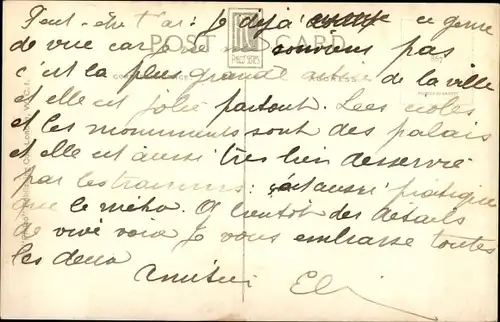 Peut-être t'ai-je déjà envoyé ce genre
de vue car je ne me souviens pas
POST CARD
c'est la plus grande artère de la ville
et elle est jolie partout. Les écoles
et les monuments sont des palais
et elle est aussi très bien desservie
par les tramways: c'est aussi pratique
que le métro. A bientôt des détails
de vive voix Je vous embrasse toutes
les deux